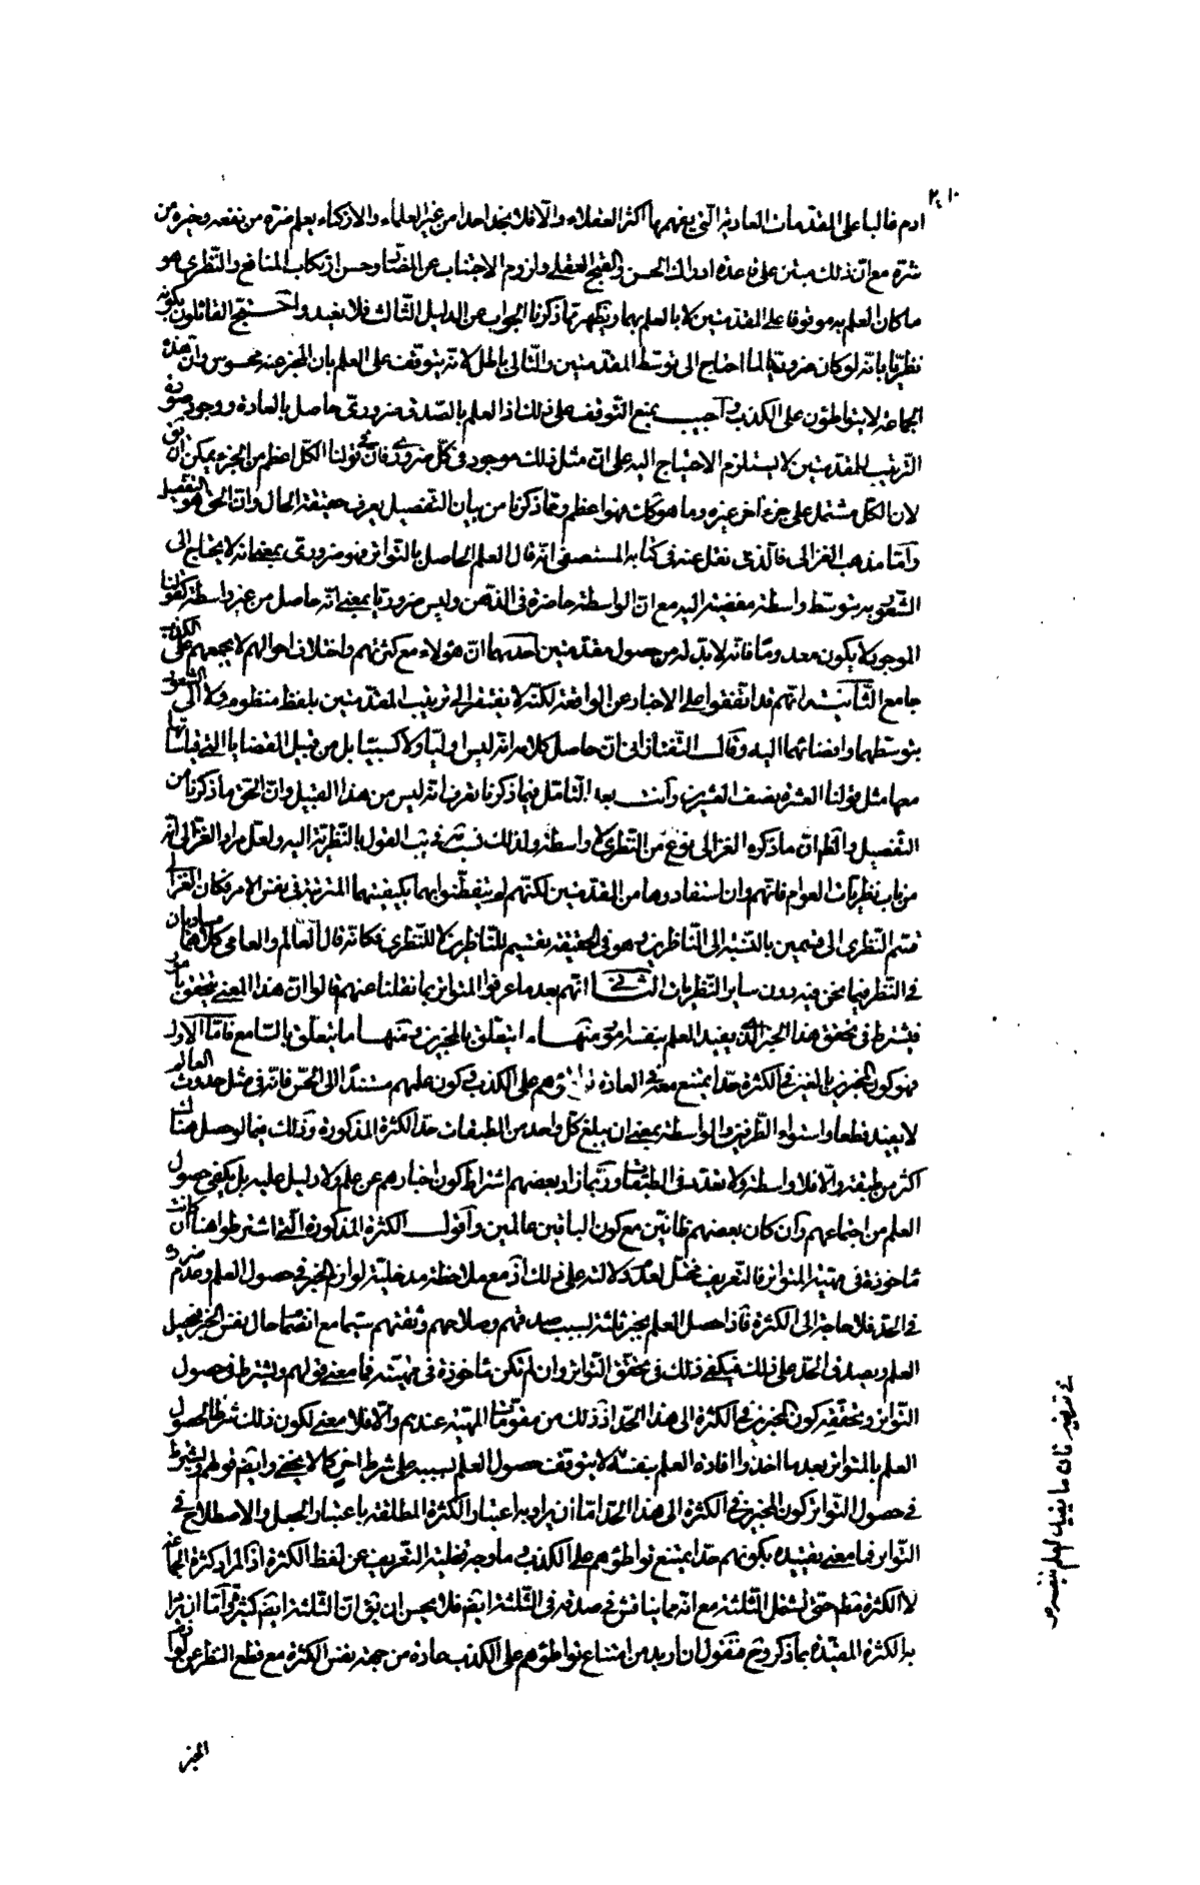 ادم غالبا على المقدمات العادية التى يفهمها اكثر العقلاء والا فلا نجد احدا من غير العلماء والاذكياء يعلم ضره من نفعه وخيره من
شره مع ان ذلك مبتن على قاعدة ادراك الحسن والقبح العقلى ولزوم الاجتناب عن المضار وحسن ارتكاب المنافع والنظرى هو
ما كان العلم به موقوفا على المقدمتين لا بالعلم بهما ويظهر مما ذكرنا الجواب عن الدليل الثالث فلا نعيد واحتج القائلون بكونه
نظريا بانه لو كان ضروريا لما احتاج الى توسط المقدمتين والتالى باطل لانه يتوقف على العلم بان المخبر عنه محسوس وان هذه
الجماعة لا يتواطئون على الكذب واجيب بمنع التوقف على ذلك اذ العلم بالصدق ضرورى حاصل بالعادة ووجود صورة
الترتيب للمقدمتين لا يستلزم الاحتياج اليه على ان مثل ذلك موجود فى كل ضرورى فان قولنا الكل اعظم من الجزء يمكن ان يق
لان الكل مشتمل على جزء اخر غيره وما هو كك فهو اعظم ومما ذكرنا من بيان التفصيل يعرف حقيقة الحال وان الحق هو التفصيل
واما مذهب الغزالى فالذى نقل عنه فى كتابه المستصفى انه قال العلم الحاصل بالتواتر فهو ضرورى بمعنى انه لا يحتاج الى
الشعور به بتوسط واسطة مفضية اليه مع ان الواسطة حاضرة فى الذهن وليس ضروريا بمعنى انه حاصل من غير واسطة كقولنا
الموجود لا يكون معدوما فانه لا بد له من حصول مقدمتين احدهما ان هؤلاء مع كثرتهم واختلاف احوالهم لا يجمعهم على الكذب
جامع الثانية انهم قد اتفقوا على الاخبار عن الواقعة لكنه لا يفتقر الى ترتيب المقدمتين بلفظ منظوم ولا الى الشعور
بتوسطهما وافضائهما اليه وقال التفتازانى ان حاصل كلامه انه ليس اوليا ولا كسبيا بل من قبيل القضايا التى قياساتها
معها مثل قولنا العشرة نصف العشرين وانت بعد التامل فيما ذكرنا تعرف انه ليس من هذا القبيل وان الحق ما ذكرنا من
التفصيل والظ ان ما ذكره الغزالى نوع من النظرى لا واسطة ولذلك نسب القول بالنظرية اليه ولعل مراد الغزالى انه
من باب نظريات العوام فانهم وان استفادوها من المقدمتين لكنهم لم يتفطنوا بهما بكيفيتهما المترتبة فى نفس الامر فكان الغزالى
قسم النظرى الى قسمين بالنسبة الى الناظرين وهو فى الحقيقة تقسيم للناظرين لا للنظرى فكانه قال العالم والعامى كلاهما مساويان
فى النظر فيما نحن فيه دون ساير النظريات الثانى انهم بعد ما عرفوا المتواتر بما نقلنا عنهم قالوا ان هذا المعنى يتحقق بامور
فيشترط فى تحقق هذا الخبر الذى يفيد العلم بنفسه امور منها ما يتعلق بالمخبرين ومنها ما يتعلق بالسامع فاما الاول
فهو كون المخبرين بالغين فى الكثرة حدا يمتنع معه فى العادة تواطؤهم على الكذب وكون علمهم مستندا الى الحس فانه فى مثل حدوث العالم
لا يفيد قطعا واستواء الطرفين والواسطة بمعنى ان يبلغ كل واحد من الطبقات حد الكثرة المذكورة وذلك فيما لو حصل هناك
اكثر من طبقة والا فلا واسطة ولا تعدد فى الطبقات وربما زاد بعضهم اشتراط كون اخبارهم عن علم ولا دليل عليه بل يكفى حصول
العلم من اجتماعهم وان كان بعضهم ظانين مع كون الباقين عالمين واقول الكثرة المذكورة التى اشترطوا هنا ان كانت
ماخوذة فى مهية المتواتر فالتعريف مختل لعدم دلالته على ذلك اذ مع ملاحظة مدخلية لوازم الخبر فى حصول العلم وعدم ضرره
فى الحد فلا حاجة الى الكثرة فاذا حصل العلم بخبر ثلثة لسبب صدقهم وصلاحهم وثقتهم سيما مع انضمام حال نفس الخبر فيحصل
العلم ويصدق الحد على ذلك فيكفى ذلك فى تحقق التواتر وان لم تكن ماخوذة فى مهيته فما معنى قولهم ويشترط فى حصول
التواتر وتحققه كون المخبرين فى الكثرة الى هذا الحد اذ ذلك من مقومات المهية عندهم والا فلا معنى لكون ذلك شرطا لحصول
العلم بالمتواتر بعد ما اخذوا افادة العلم بنفسه لا يتوقف حصول العلم بسببه على شرط اخر كما لا يخفى وايضا قولهم ويشترط
فى حصول التواتر كون المخبرين فى الكثرة الى هذا الحد اما ان يراد به اعتبار الكثرة المطلقة باعتبار الجعل والاصطلاح فى
التواتر فما معنى تقييده بكونهم حدا يمتنع تواطؤهم على الكذب وما وجه فعلية التعريف عن لفظ الكثرة اذ المراد كثرة الجماعة
لا الكثرة فقط حتى تشمل الثلثة مع انه مما يناقش فى صدقه فى الثلثة ايضا فلا يحسن ان يقال ان الثلثة ايضا كثيرة واما ان يراد
به الكثرة المقيدة بما ذكر وح فنقول ان اريد من امتناع تواطؤهم على الكذب عادة من جهة نفس الكثرة مع قطع النظر عن لوازم
الخبر
فى تعريفه فان ما يفيد العلم بنفسه